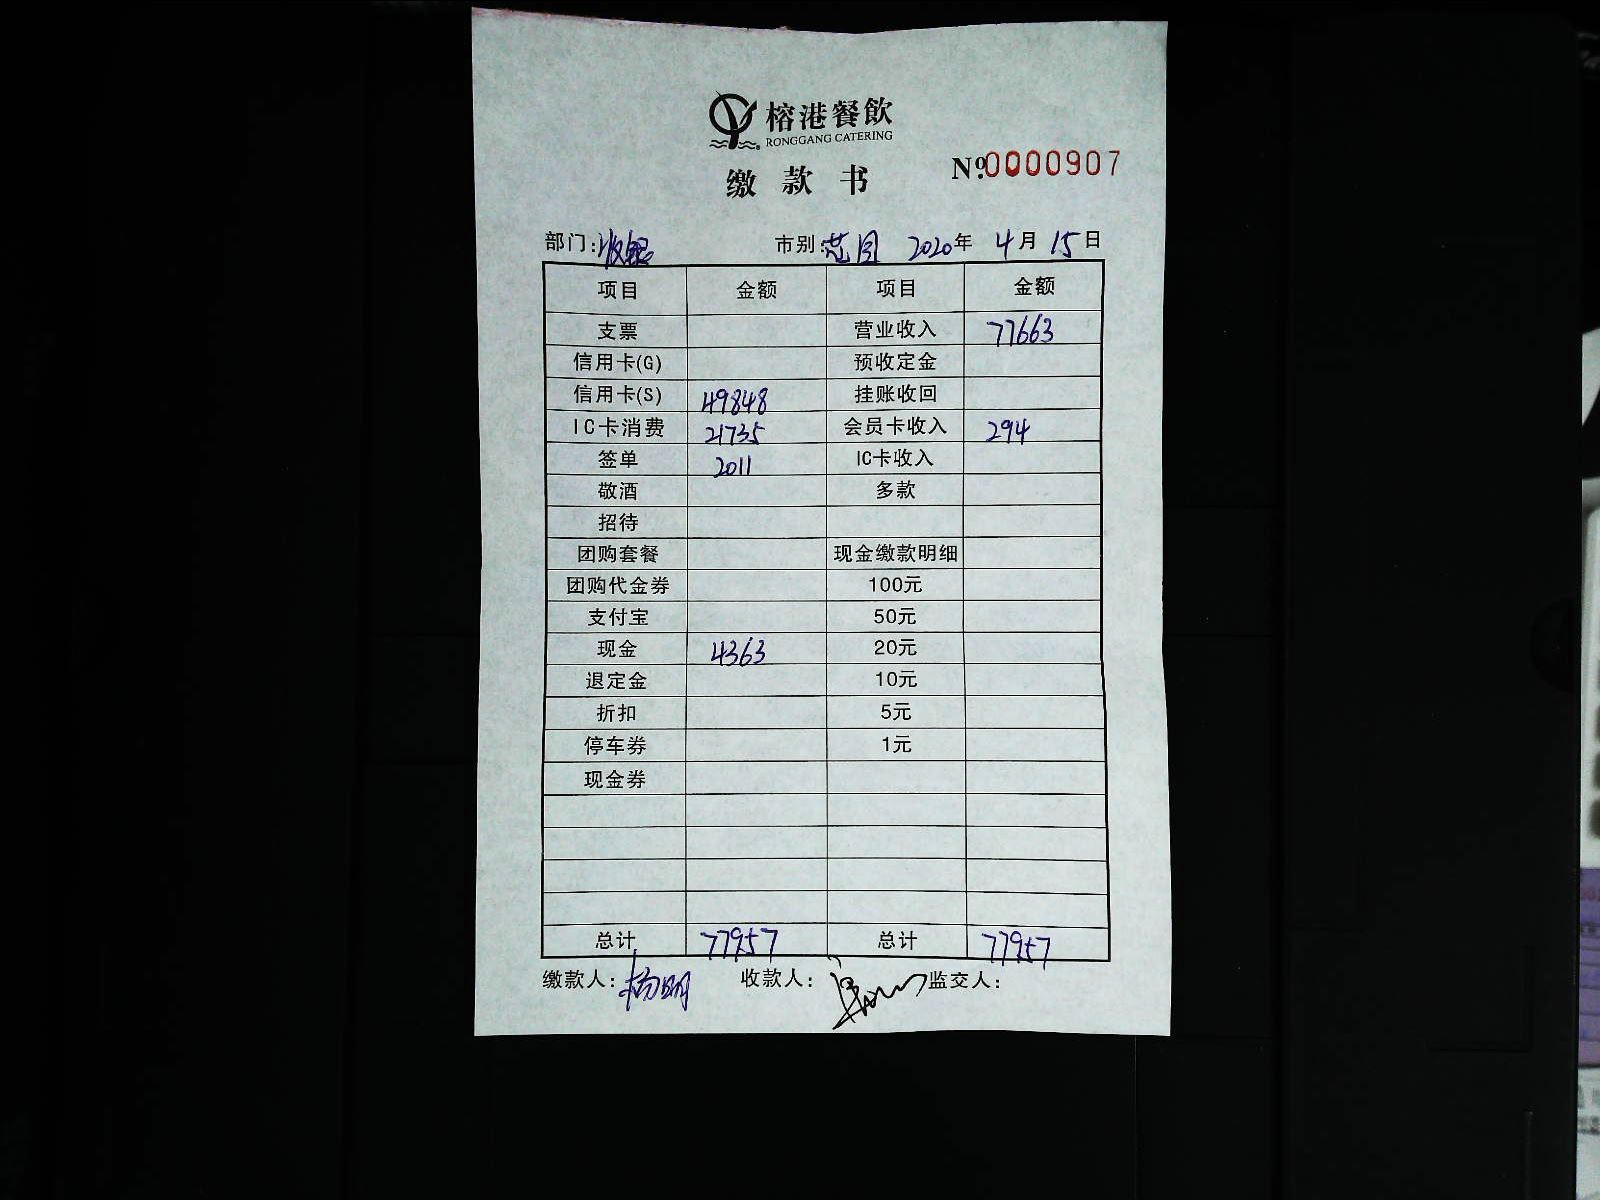 榕港餐飲
RONGGANG CATERING
缴款书 №0000907
部门:收银 市别: 2020年4月15日
项目 金额 项目 金额
支票 营业收入 77663
信用卡(G) 预收定金
信用卡(S) 49848 挂账收回
IC卡消费 21735 会员卡收入 294
签单 2011 IC卡收入
敬酒 多款
招待
团购套餐 现金缴款明细
团购代金券 100元
支付宝 50元
现金 4363 20元
退定金 10元
折扣 5元
停车券 1元
现金券
总计 77957 总计 77957
缴款人:杨明 收款人: 监交人: